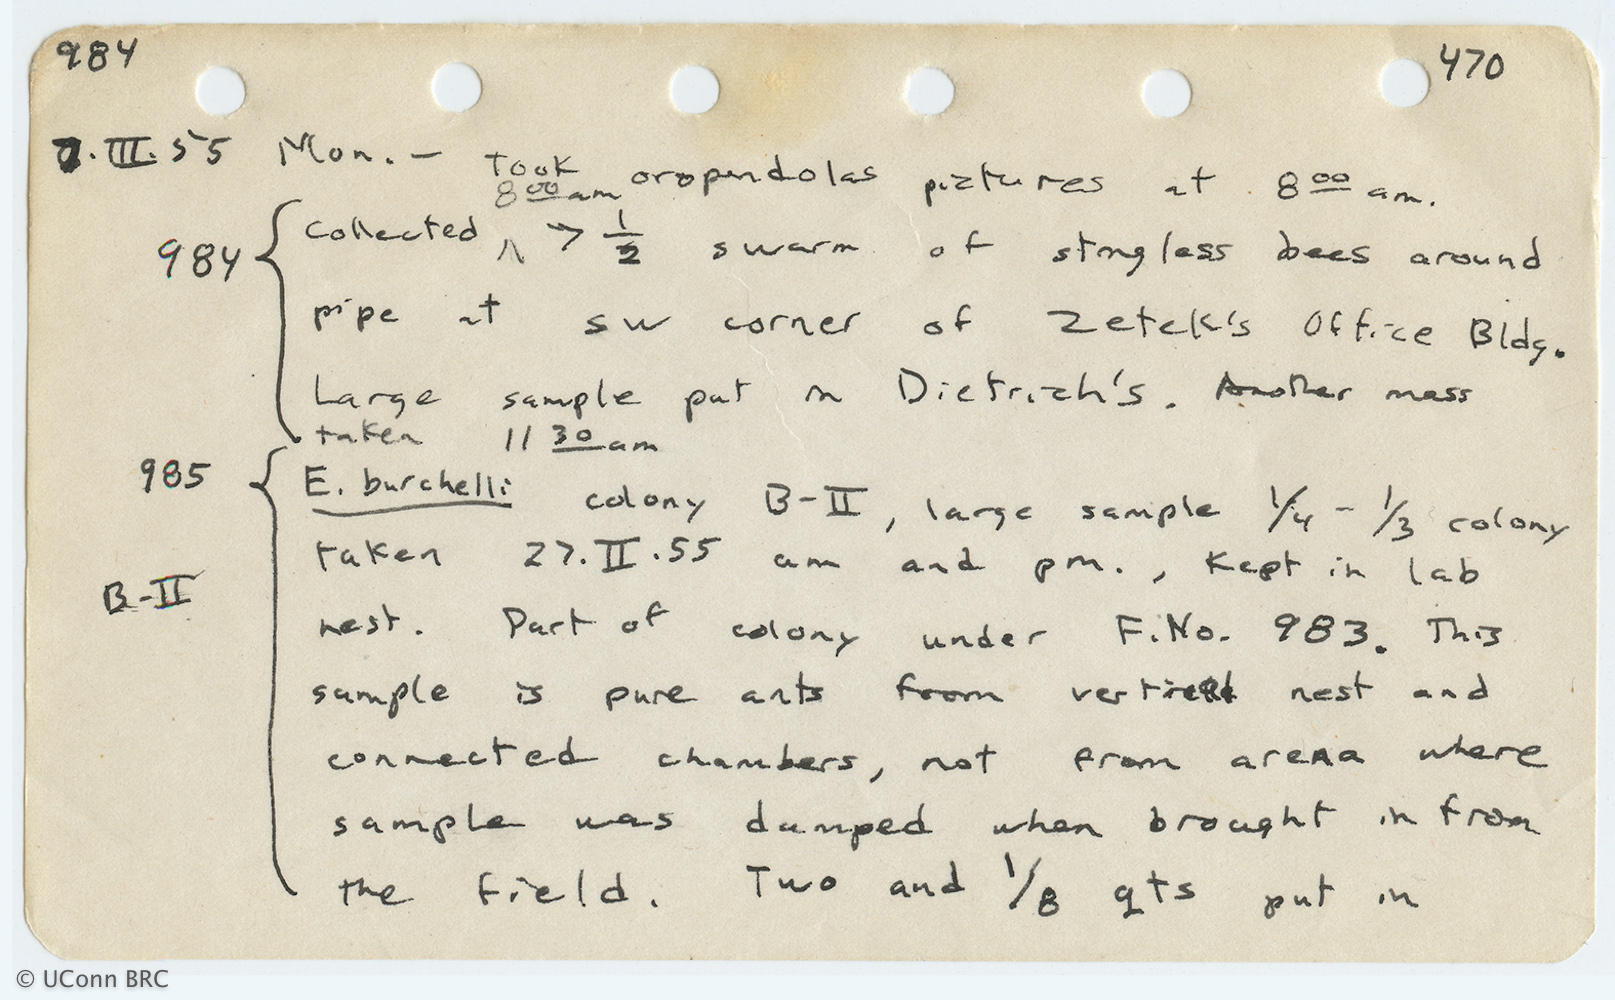 984 470
7.III.55 Mon. — Took oropendolas pictures at 8 00 am.
8 00 am
984 { Collected ^ > 1/2 swarm of stingless bees around
pipe at SW corner of Zetek's Office Bldg.
Large sample put in Dietrich's. Another mess
taken 11 30 am
985 { E. burchelli colony B-II, large sample 1/4 - 1/3 colony
taken 27.II.55 am and pm., Kept in lab
B-II nest. Part of colony under F.No. 983. This
sample is pure ants from vertical nest and
connected chambers, not from arena where
sample was dumped when brought in from
the field. Two and 1/8 qts put in
© UConn BRC